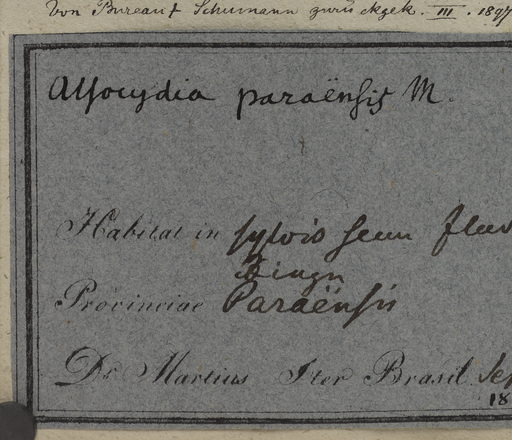 Von Bureau & Schumann zurückgek. III. 1897
Alsocydia paraënsis M.
Habitat in sylvis secus fluv
Xingu
Provinciae Paraënsis
Dr Martius Iter Brasil. Sep
18